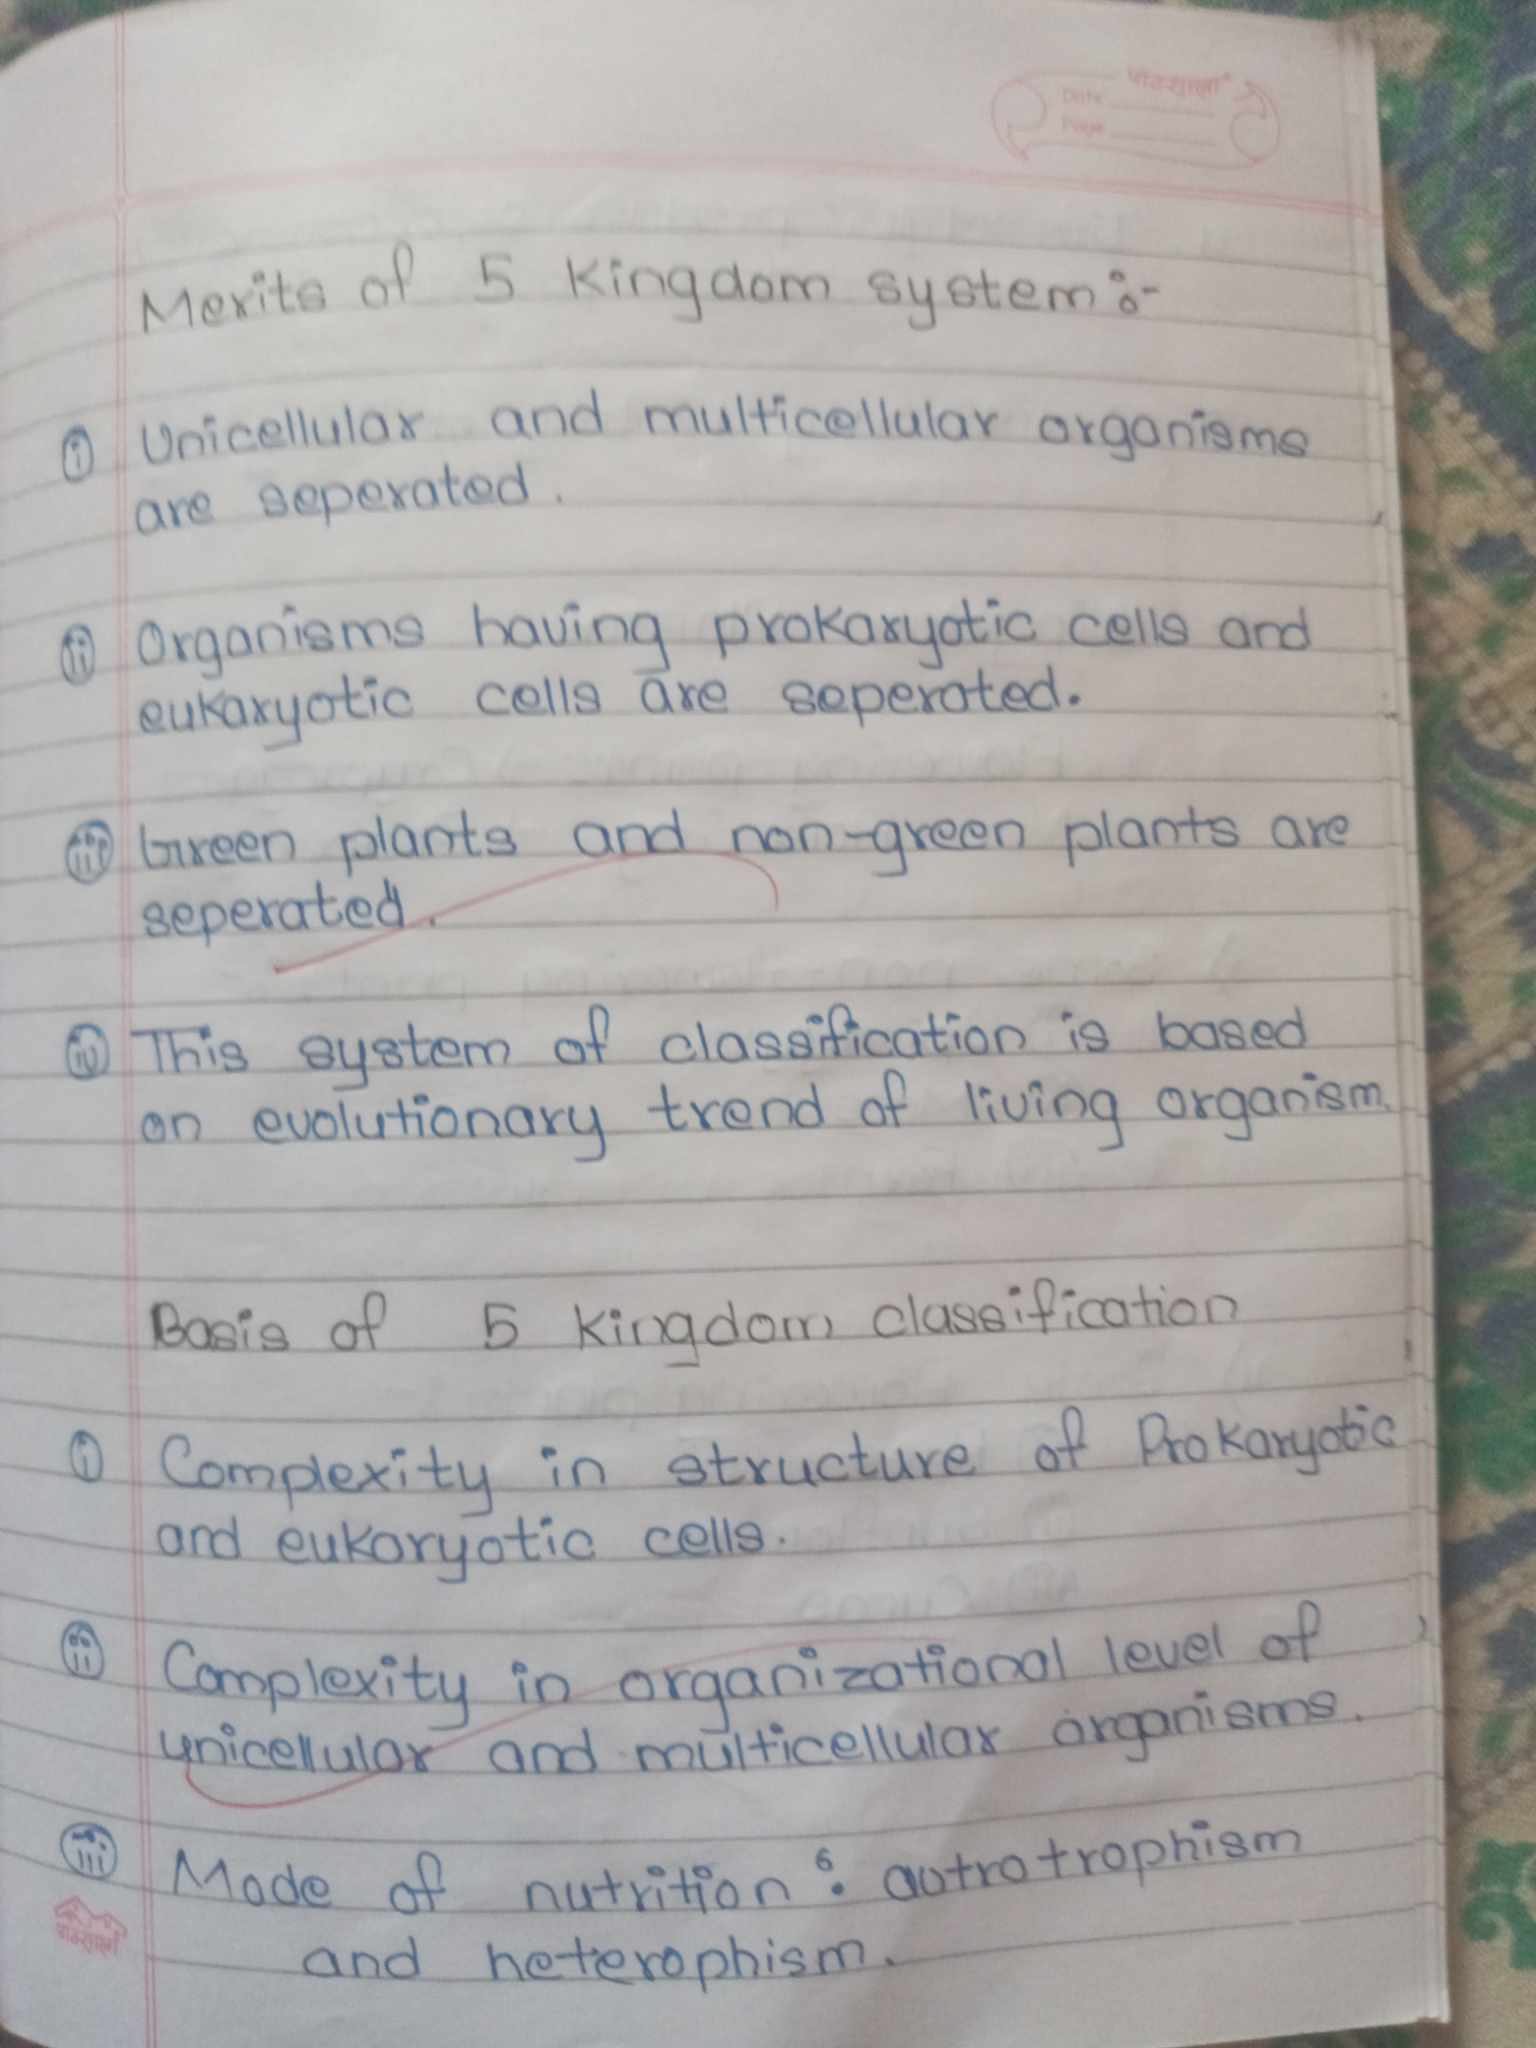 पाठशाला
Date
Page
Merits of 5 Kingdom system :-
(i) Unicellular and multicellular organisms
are seperated.
(ii) Organisms having prokaryotic cells and
eukaryotic cells are seperated.
(iii) Green plants and non-green plants are
seperated.
(iv) This system of classification is based
on evolutionary trend of living organism.
Basis of 5 Kingdom classification
(i) Complexity in structure of Prokaryotic
and eukaryotic cells.
(ii) Complexity in organizational level of
unicellular and multicellular organisms.
(iii) Mode of nutrition : autrotrophism
and heterophism.
पाठशाला